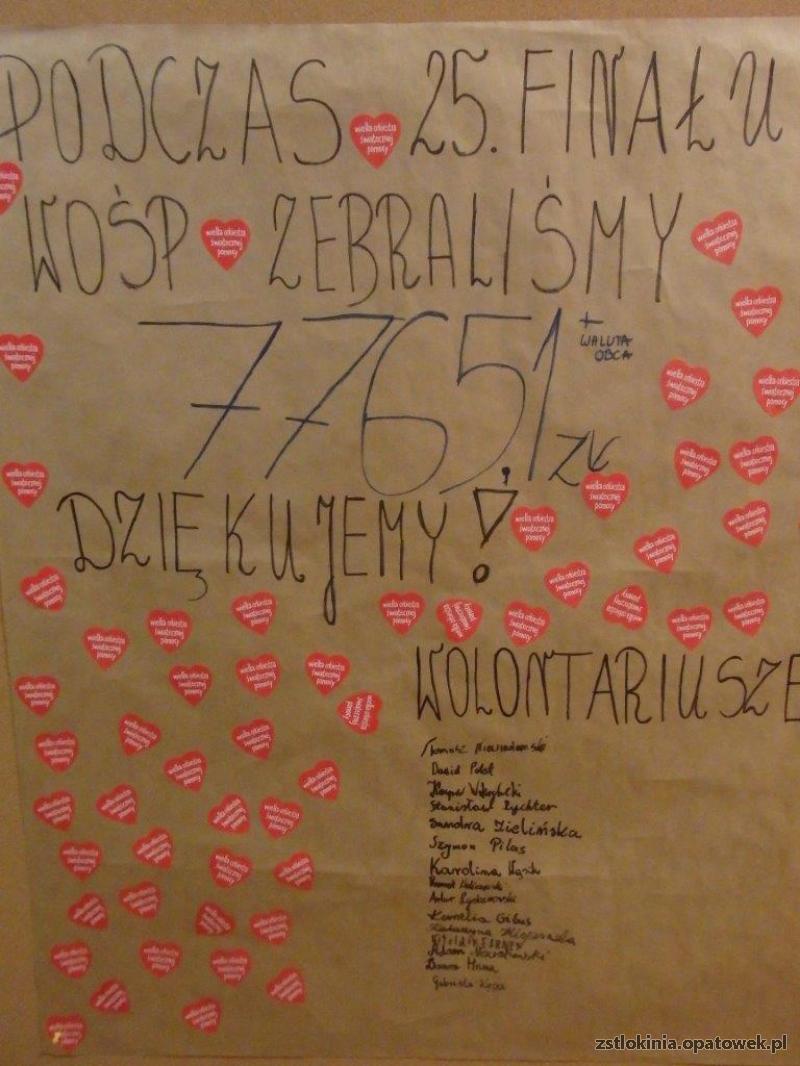 PODCZAS 25. FINAŁU
WOŚP ZEBRALIŚMY
7765,1 ZŁ
+ WALUTA
OBCA
DZIĘKUJEMY!
WOLONTARIUSZE
Dawid
Stanisław Rychter
Sandra Zielińska
Szymon Pilas
Karolina
Artur
Kornelia Gibus
Katarzyna
Adam
Gabriela
wielka orkiestra
świątecznej
pomocy
zstlokinia.opatowek.pl